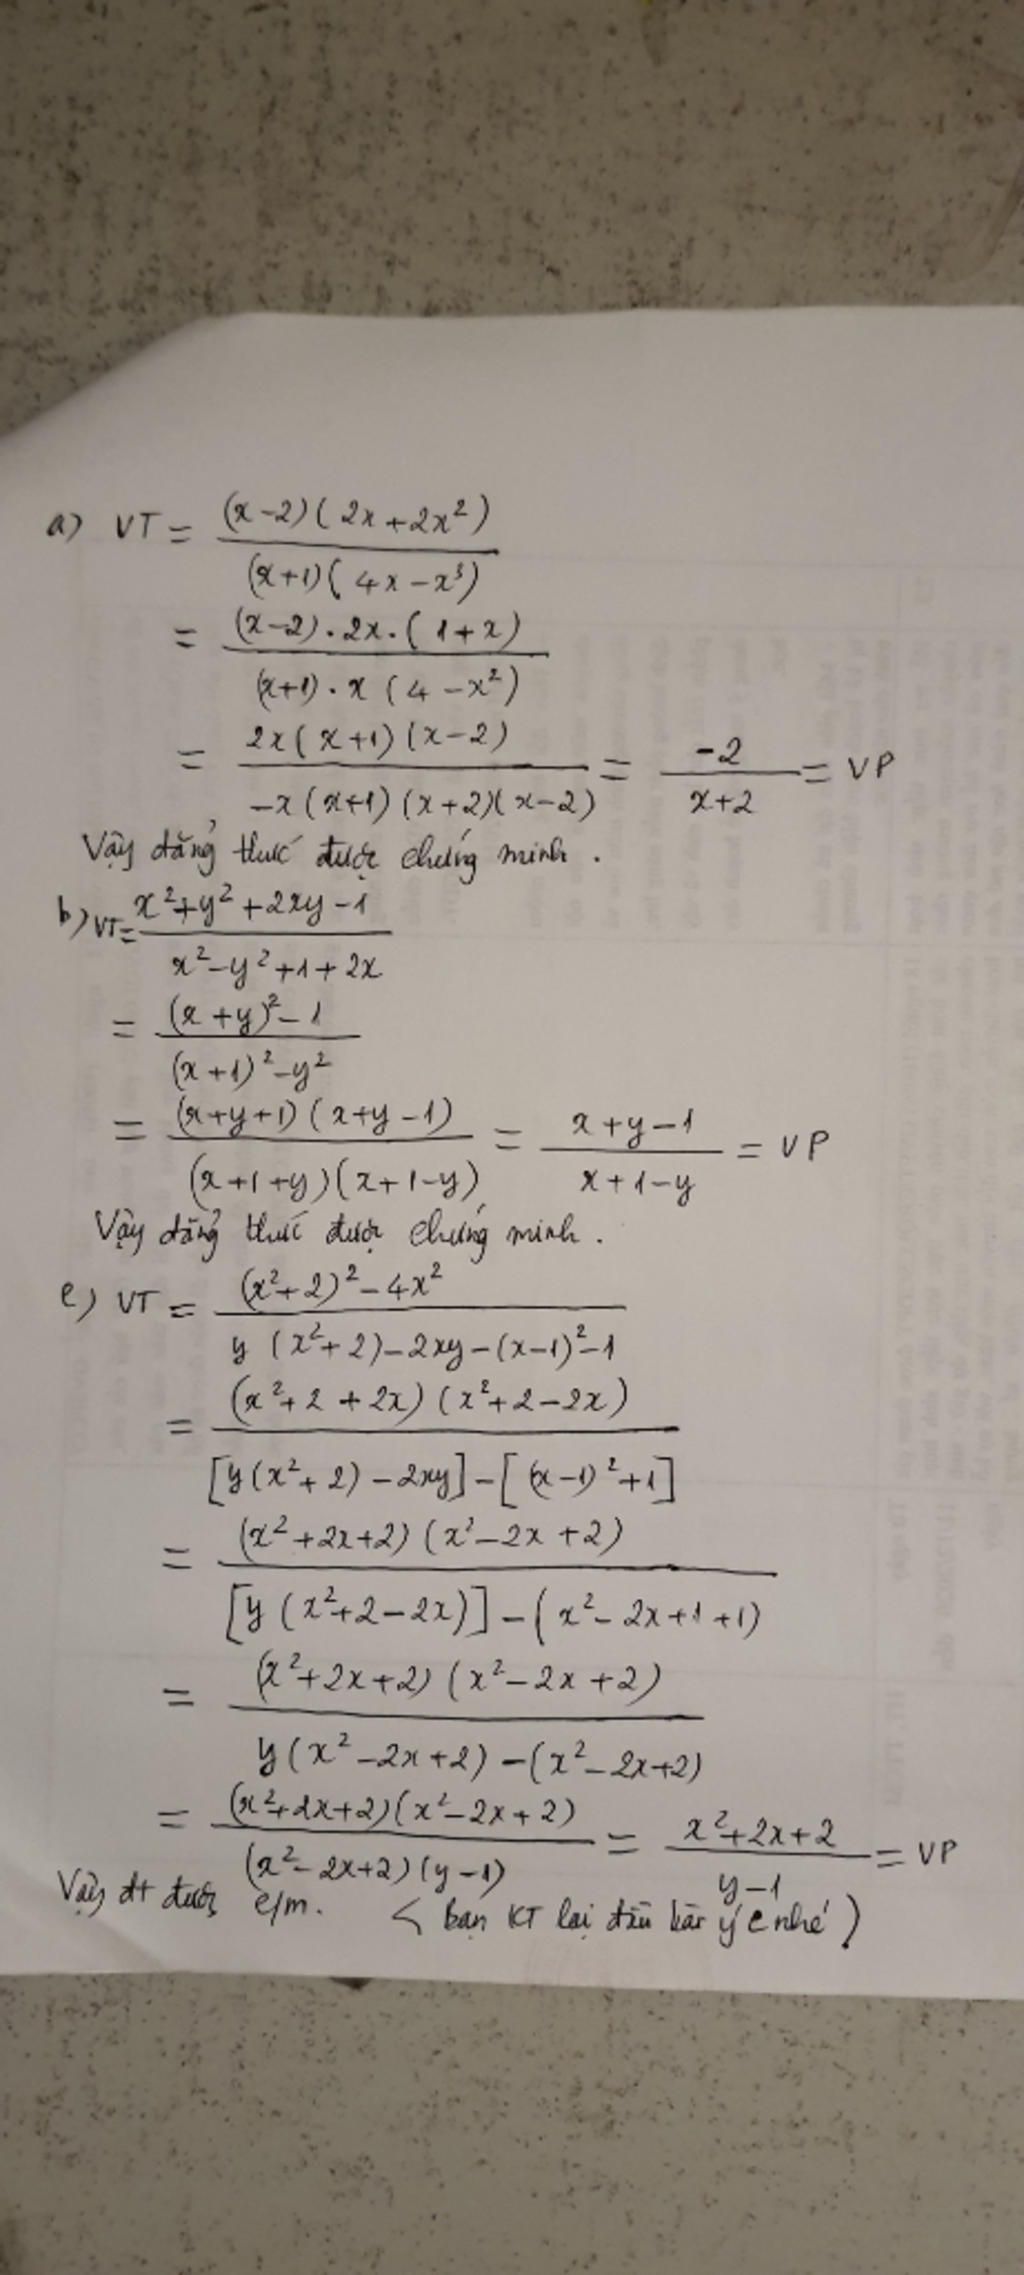 a) VT = (x-2)(2x+2x²) / (x+1)(4x-x³)
= (x-2).2x.(1+x) / (x+1).x(4-x²)
= 2x(x+1)(x-2) / -x(x+1)(x+2)(x-2) = -2 / x+2 = VP
Vậy đẳng thức được chứng minh.
b) VT = x²+y²+2xy-1 / x²-y²+1+2x
= (x+y)²-1 / (x+1)²-y²
= (x+y+1)(x+y-1) / (x+1+y)(x+1-y) = x+y-1 / x+1-y = VP
Vậy đẳng thức được chứng minh.
c) VT = (x²+2)²-4x² / y(x²+2)-2xy-(x-1)²-1
= (x²+2+2x)(x²+2-2x) / [y(x²+2)-2xy]-[(x-1)²+1]
= (x²+2x+2)(x²-2x+2) / [y(x²+2-2x)]-(x²-2x+1+1)
= (x²+2x+2)(x²-2x+2) / y(x²-2x+2)-(x²-2x+2)
= (x²+2x+2)(x²-2x+2) / (x²-2x+2)(y-1) = x²+2x+2 / y-1 = VP
Vậy đt được c/m. (bạn KT lại đầu bài ý c nhé)